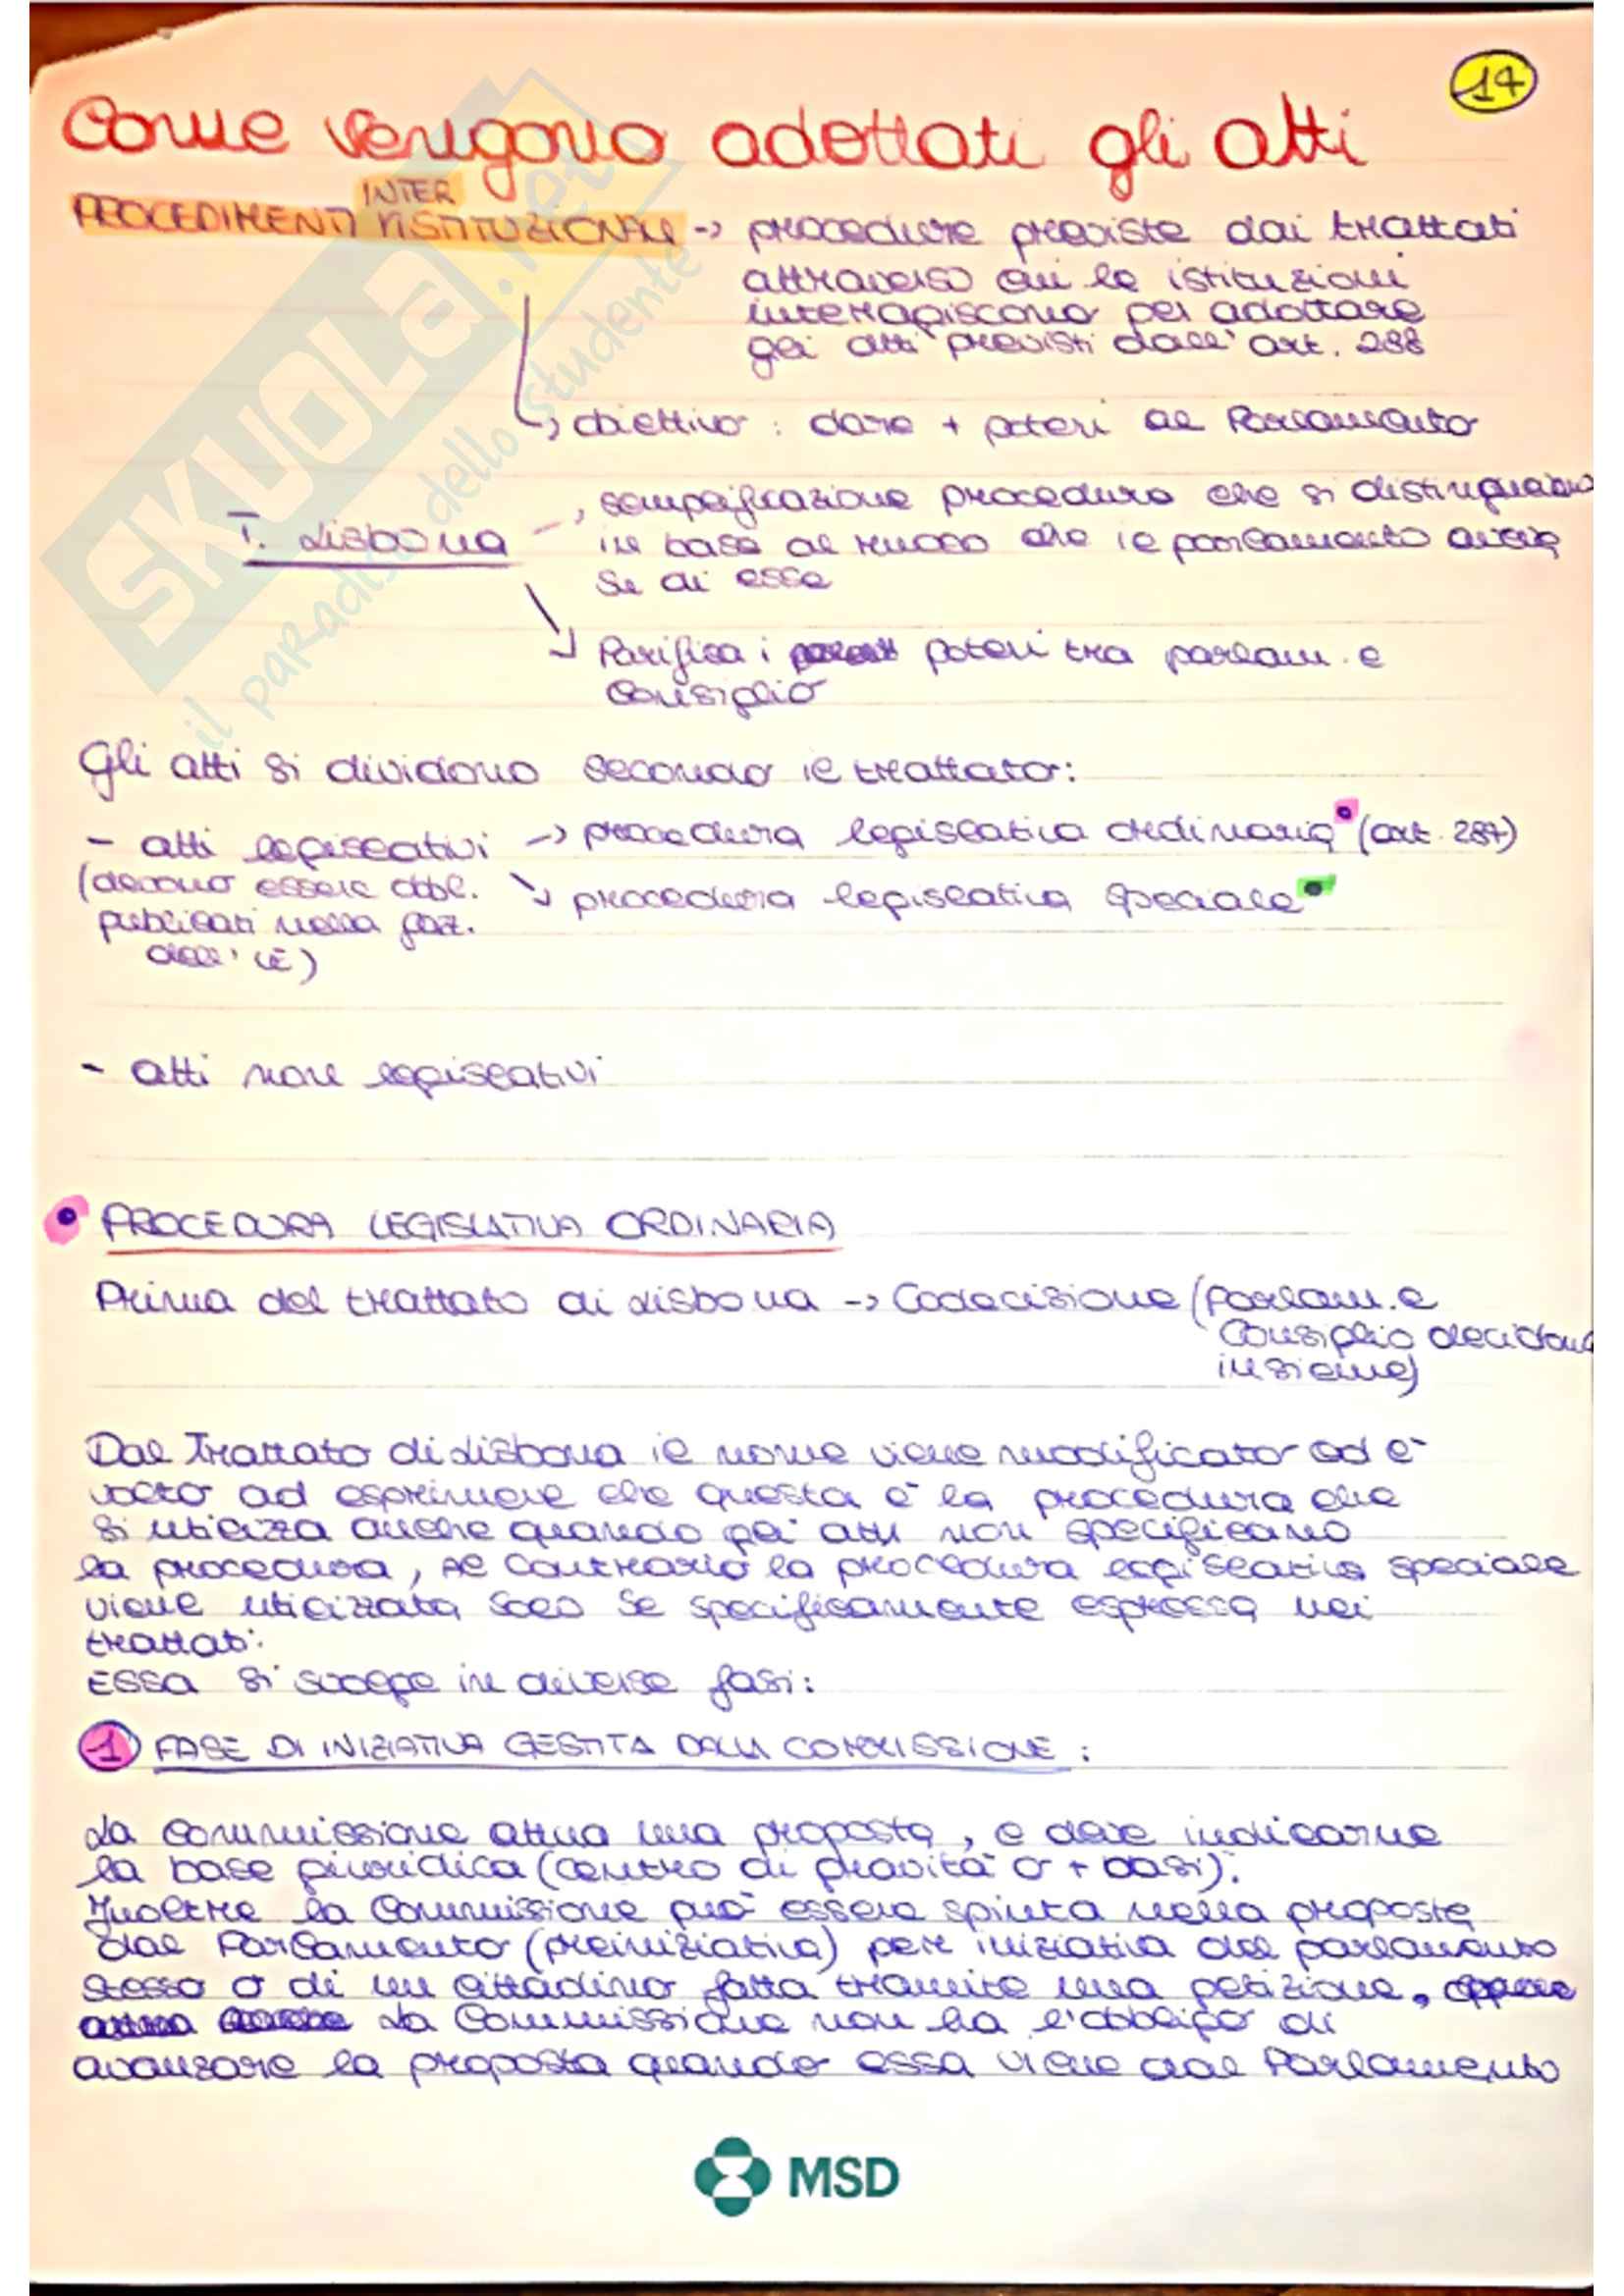 14
Come vengono adottati gli atti
INTER
PROCEDIMENTI ISTITUZIONALI -> procedure previste dai trattati
attraverso cui le istituzioni
interagiscono per adottare
gli atti previsti dall'art. 288
obiettivo: dare + poteri al Parlamento
T. Lisbona
semplificazione procedure che si distinguono
in base al ruolo che il parlamento
su di esse
Parifica i poteri tra parlam. e
Consiglio
Gli atti si dividono secondo il trattato:
- atti legislativi -> procedura legislativa ordinaria (art. 287)
(devono essere obbl. procedura legislativa speciale
pubblicati nella gaz.
dell' UE)
- atti non legislativi
PROCEDURA LEGISLATIVA ORDINARIA
Prima del trattato di Lisbona -> Codecisione (parlam. e
Consiglio decidono
insieme)
Dal Trattato di Lisbona il nome viene modificato ed è
volto ad esprimere che questa è la procedura che
si utilizza anche quando gli atti non specificano
la procedura, al contrario la procedura legislativa speciale
viene utilizzata solo se specificamente espressa nei
trattati.
Essa si svolge in diverse fasi:
1 FASE DI INIZIATIVA GESTITA DALLA COMMISSIONE:
La commissione attua una proposta, e deve indicarne
la base giuridica (centro di gravità o + basi).
Inoltre la Commissione può essere spinta nella proposta
dal Parlamento (preiniziativa) per iniziativa del parlamento
stesso o di un cittadino fatta tramite una petizione,
La Commissione non ha l'obbligo di
avanzare la proposta quando essa viene dal Parlamento
MSD
SKUOLA.net
il paradiso dello studente